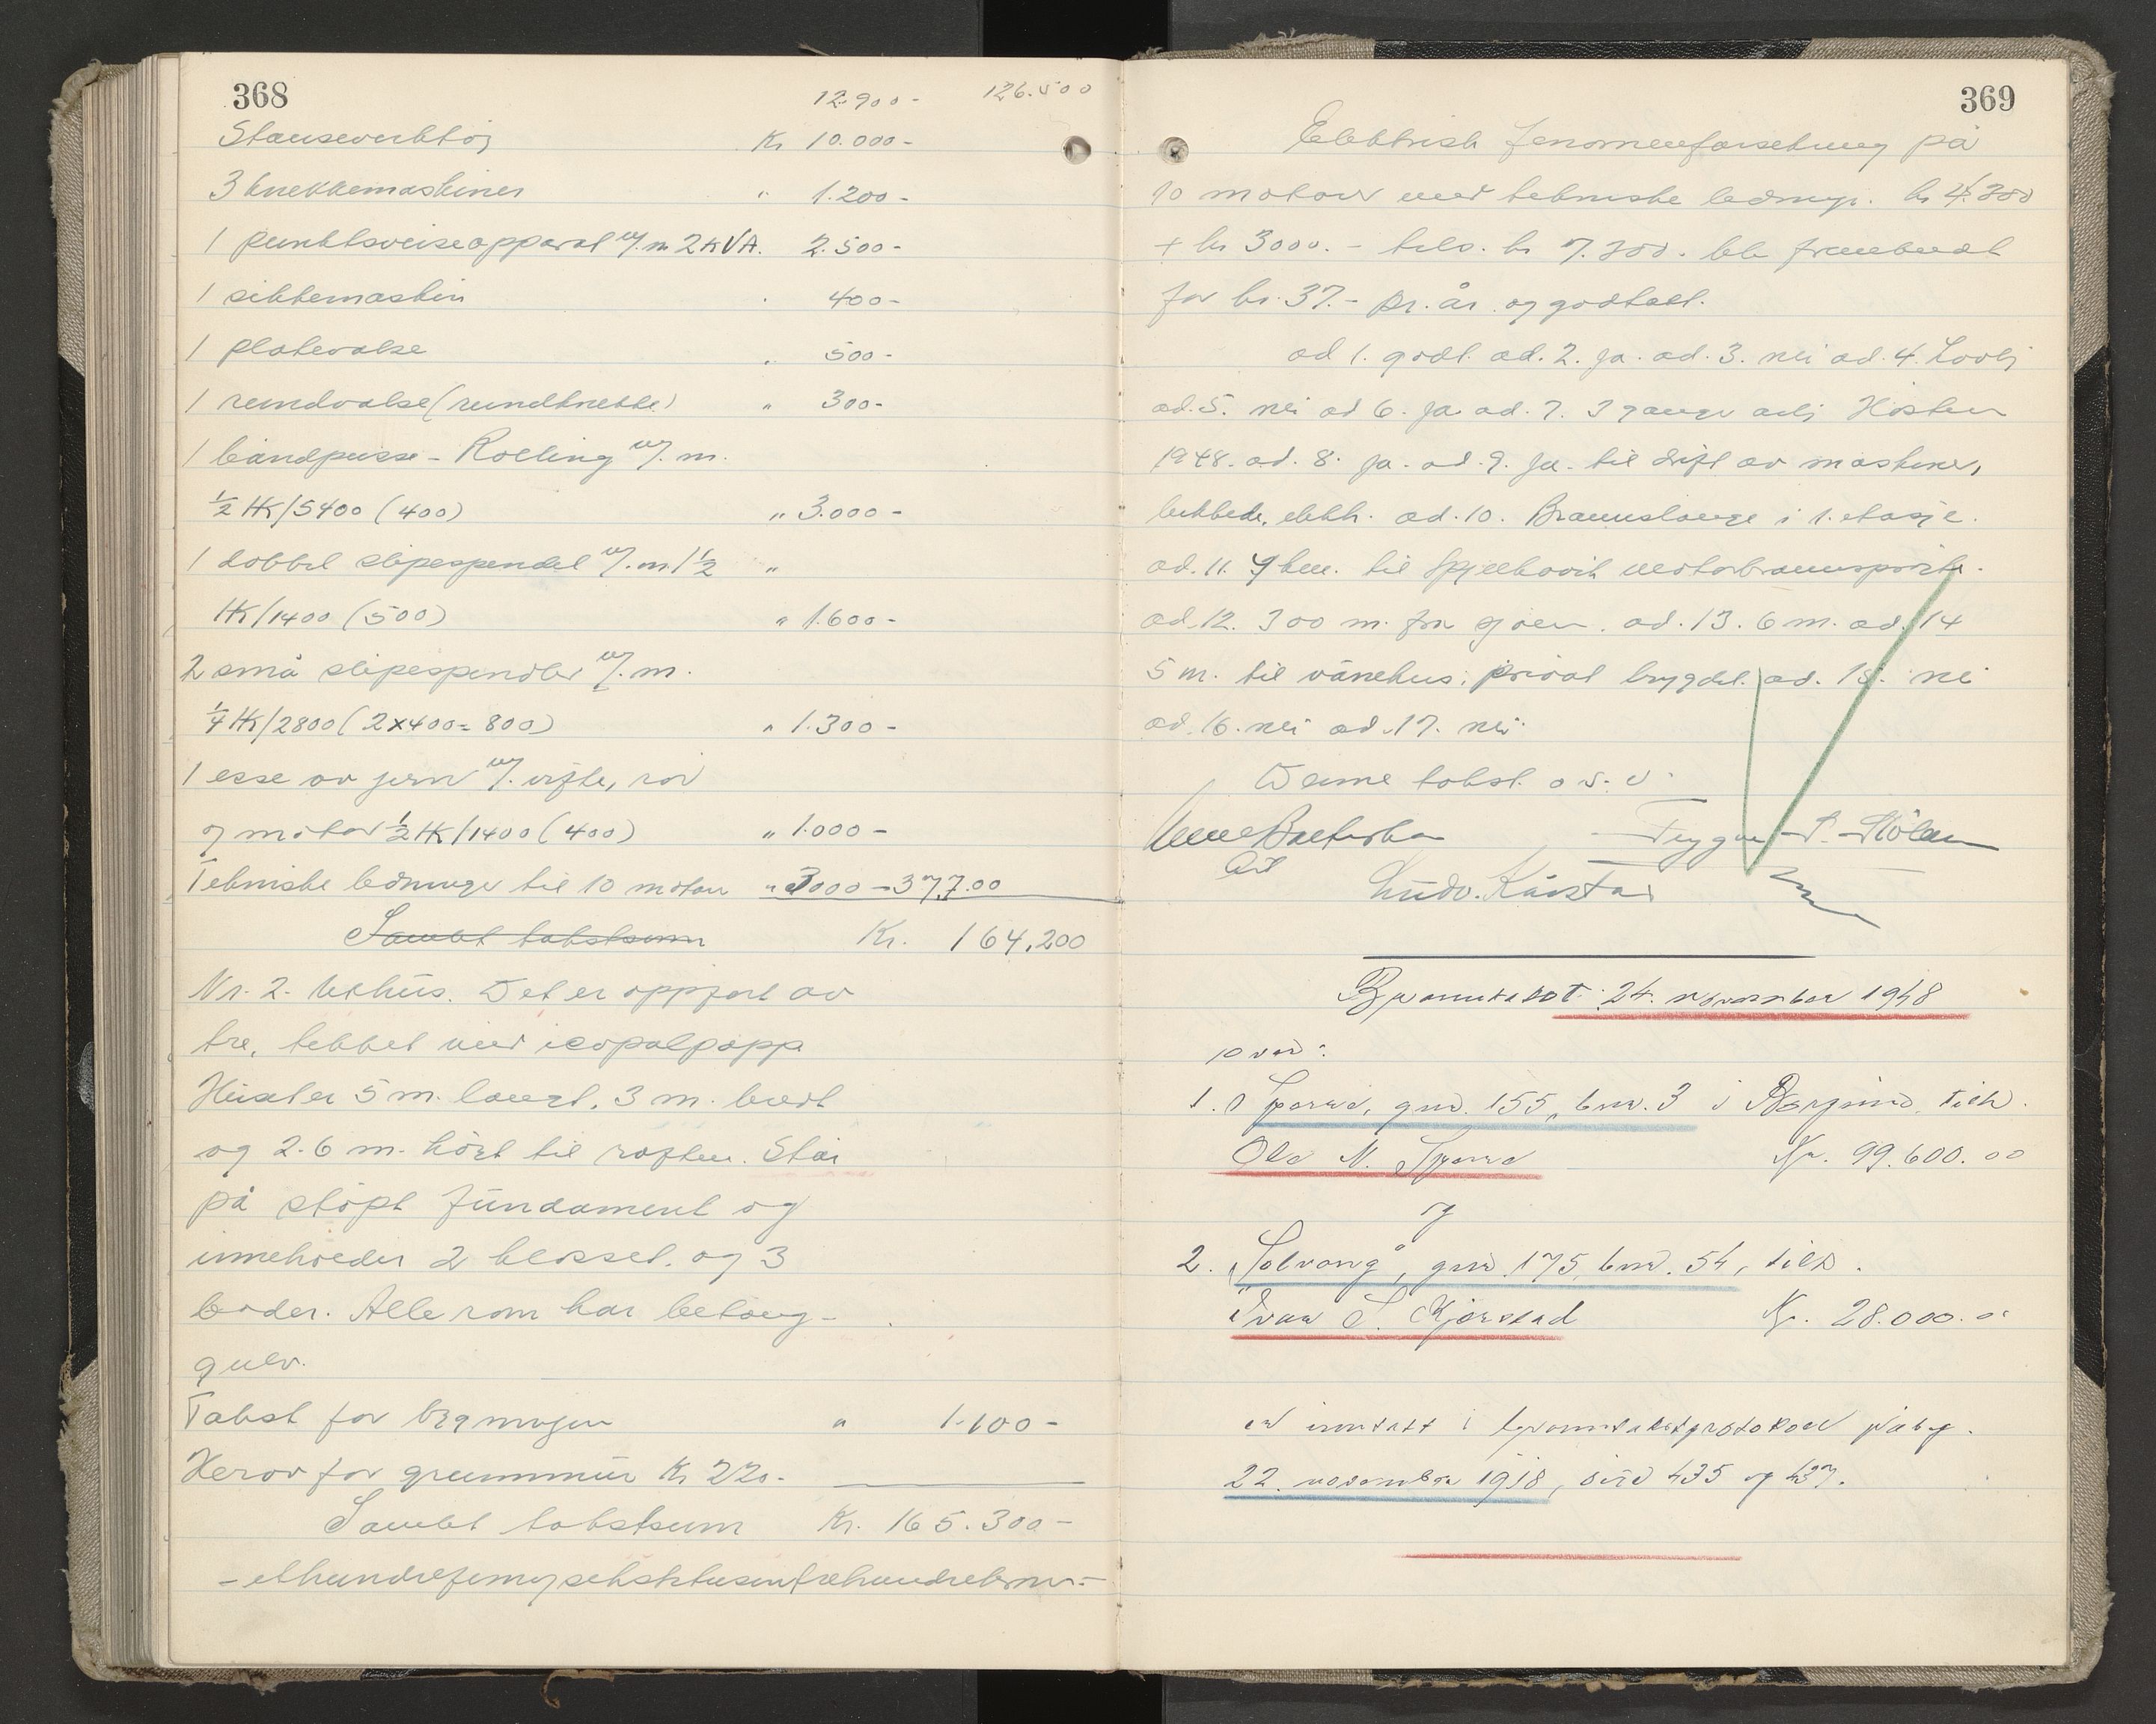 368
12.900- 126.500
Stanseverktøj Kr 10.000-
3 knekkemaskiner " 1.200-
1 punktsveiseapparat m/. m 2 KVA. 2.500-
1 sikkemaskin 400-
1 platevalse " 500-
1 rundvalse (rundknekke) " 300-
1 båndpusse - Roeling m/. m.
½ HK/5400 (400) " 3.000-
1 dobbel slipespindel m/. m. 1½ "
HK/1400 (500) " 1.600-
2 små slipespindler m/. m.
¼ HK/2800 (2x400=800) " 1.300-
1 esse av jern m/. vifte, rør
og motor ½ HK/1400 (400) " 1.000-
Tekniske ledninger til 10 motorer " 3000 - 37700
Samlet takstsum Kr. 164,200
Nr. 2. Uthus. Det er oppført av
tre, tekket med icopalpapp
Huset er 5 m. langt, 3 m. bredt
og 2.6 m. høgt til røsten. Står
på støpt fundament og
inneholder 2 klosset. og 3
boder. Alle rom har betong-
gulv.
Takst for bygningen " 1.100-
Herav for grunnmur Kr 220.-
Samlet takstsum Kr. 165.300-
- etthundreføttiogsekstitusentrehundrekroner -
369
Elektrisk fenomenforsikring på
10 motorer med tekniske ledninger. kr 4.300
+ kr 3000.- tils. kr 7.300. ble frembudt
for kr. 37.- pr. år. og godtatt.
ad 1. godt. ad. 2. ja. ad. 3. nei ad. 4. Lovlig
ad. 5. nei ad 6. ja ad. 7. 3 ganger årlig Høsten
1948. ad. 8. ja. ad. 9. ja. til drift av maskiner,
lukkede, elektr. ad. 10. Brannslange i 1. etasje.
ad. 11. 9 km. til Spjelkavik motorbrannsprøite.
ad. 12. 300 m. fra sjøen. ad. 13. 6 m. ad. 14
5 m. til vånehus; privat bygdet. ad. 15. nei
ad. 16. nei ad. 17. nei
Denne takst o.s.v.
Trygve P. Stølen
Ludv. Kårstad
Branntakst 24. november 1948
over:
1. gnr. 155, bnr. 3 i Borgund, tilh.
Ola N. Kr. 99.600.00
og
2. "Solvang", gnr. 175, bnr. 54, tilh.
Ivar Kjørstad Kr. 28.000.00
er inntatt i branntakstprotokoll påbeg.
22. november 1918, side 435 og 437.